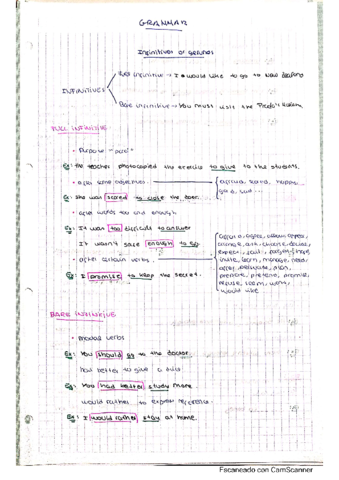 GRAMMAR
Infinitives or gerunds
INFINITIVES
Full infinitive → I would like to go to New
Bare infinitive → You must visit the
FULL INFINITIVE
• Purpose
Ex: The teacher photocopied the exercise to give to the students.
• after some adjectives
afraid, scared, happy,
glad, sad...
Ex: She was scared to close the door.
• after words too and enough
Ex: It was too difficult to answer
It wasn't safe enough to go
• after certain verbs
afford, agree, appear,
arrange, ask, choose, decide,
expect, fail, forget, hope
invite, learn, manage, need
offer, plan,
prepare, pretend, promise,
refuse, seem, want,
would like...
Ex: I promise to keep the secret.
BARE INFINITIVE
• modal verbs
Ex: You should go to the doctor
had better to give
Ex: You had better study more.
would rather to express preference.
Ex: I would rather stay at home.
Escaneado con CamScanner